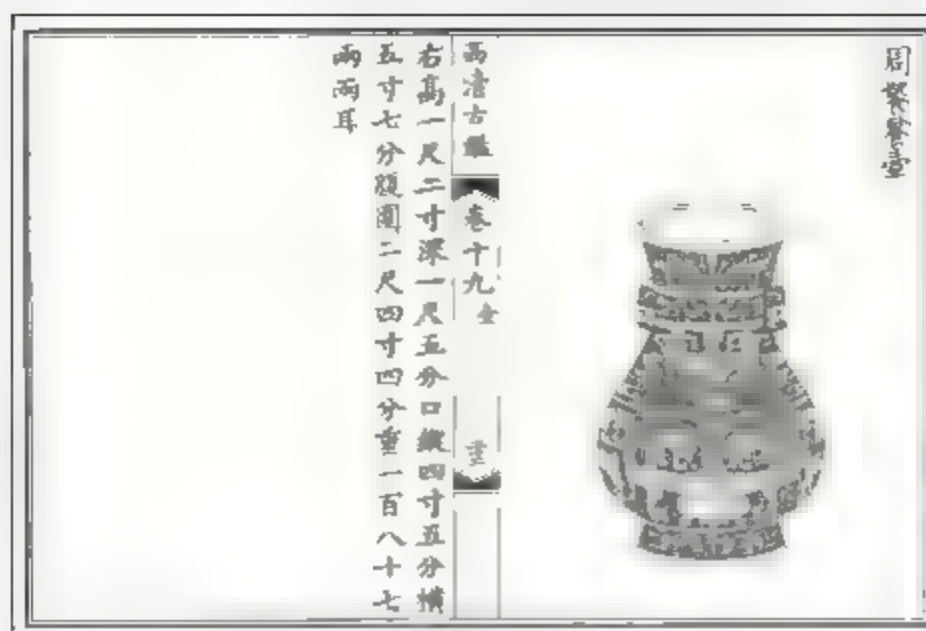 周蟠夔壺
西清古鑑 卷十九 壺
右高一尺二寸深一尺五分口縱四寸五分橫
五寸七分腹圍二尺四寸四分重一百八十七
兩兩耳